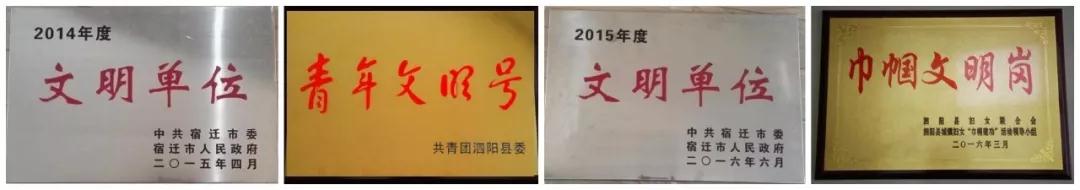 2014年度
文明单位
中共宿迁市委
宿迁市人民政府
二〇一五年四月
青年文明号
共青团泗阳县委
2015年度
文明单位
中共宿迁市委
宿迁市人民政府
二〇一六年六月
巾帼文明岗
泗阳县妇女联合会
泗阳县城镇妇女“巾帼建功”活动领导小组
二〇一六年三月